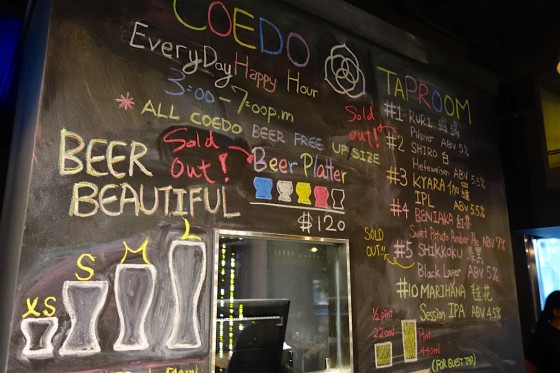 COEDO
EveryDay Happy Hour
3:00-7:00p.m
* ALL COEDO BEER FREE UP/SIZE
BEER
BEAUTIFUL
Sold
Out!
Beer Platter
$120
XS S M L
TAPROOM
Sold
out!
#1 RURI 瑠璃
Pilsner ABV 5%
#2 SHIRO 白
Hefeweizen ABV 5.5%
#3 KYARA 伽羅
IPL ABV 5.5%
#4 BENIAKA 紅赤
Sweet Potato Amber Ale ABV 7%
SOLD
OUT!!
#5 SHIKKOKU 漆黒
Black Lager ABV 5%
#10 MARIHANA 毬花
Session IPA ABV 4.5%
1/2 pint
220ml
Pint
440ml
(FOR GUEST TAP)